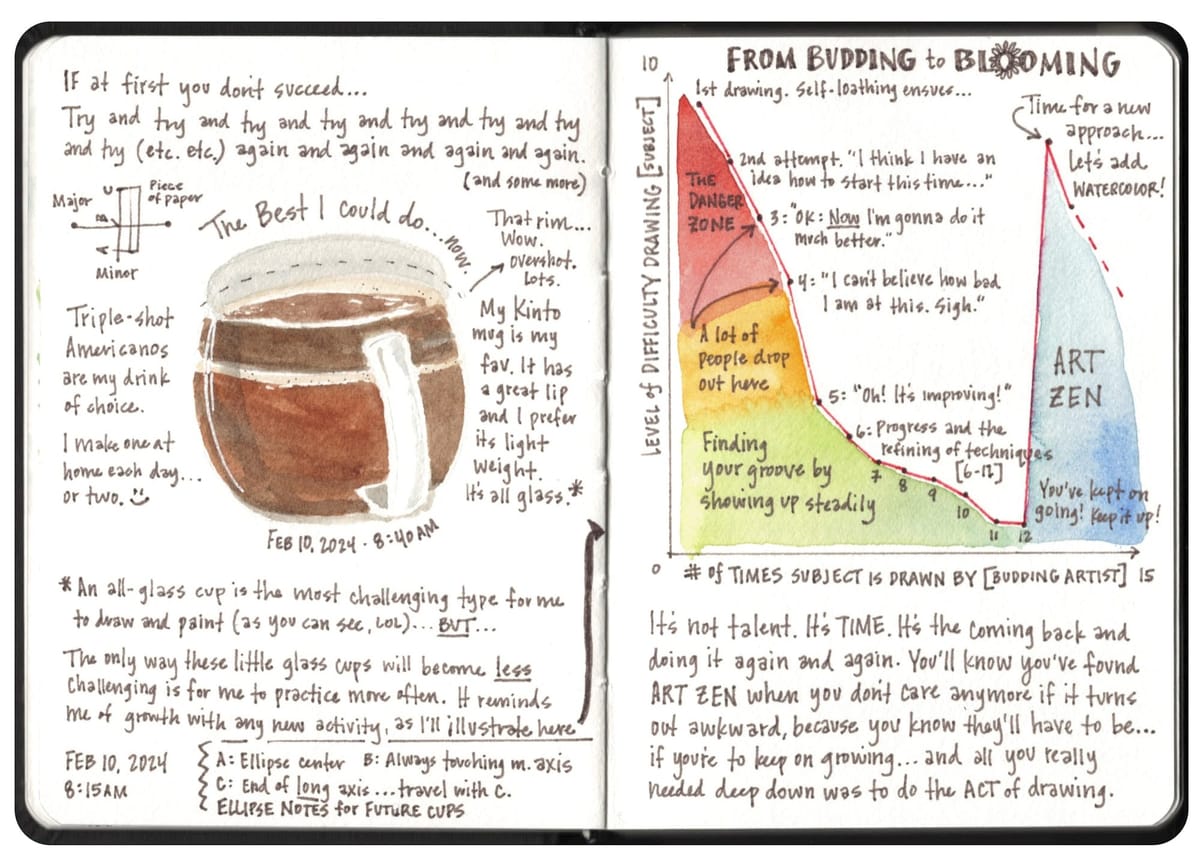 IF at first you don't succeed...
Try and try and try and try and try and try and try
and try (etc. etc.) again and again and again and again.
(and some more)
Major
Piece
of paper
Minor
The Best I could do... now.
That rim...
Wow.
overshot.
Lots.
Triple-shot
Americanos
are my drink
of choice.
I make one at
home each day...
or two.
My Kinto
mug is my
fav. It has
a great lip
and I prefer
its light
weight.
It's all glass.*
FEB 10, 2024 · 8:40 AM
* An all-glass cup is the most challenging type for me
to draw and paint (as you can see, LOL)... BUT...
The only way these little glass cups will become less
challenging is for me to practice more often. It reminds
me of growth with any new activity, as I'll illustrate here
FEB 10, 2024
8:15AM
A: Ellipse center B: Always touching m. axis
C: End of long axis... travel with C.
ELLIPSE NOTES for FUTURE CUPS
FROM BUDDING to BLOOMING
10
LEVEL of DIFFICULTY DRAWING [SUBJECT]
1st drawing. Self-loathing ensues...
2nd attempt. "I think I have an
idea how to start this time..."
3: "OK: Now I'm gonna do it
much better."
4: "I can't believe how bad
I am at this. Sigh."
THE
DANGER
ZONE
A lot of
people drop
out here
5: "Oh! It's improving!"
6: Progress and the
refining of techniques
[6-12]
7
8
9
10
11
12
Finding
your groove by
showing up steadily
Time for a new
approach...
Let's add
WATERCOLOR!
ART
ZEN
You've kept on
going! Keep it up!
0
# of TIMES SUBJECT IS DRAWN BY [BUDDING ARTIST] 15
It's not talent. It's TIME. It's the coming back and
doing it again and again. You'll know you've found
ART ZEN when you don't care anymore if it turns
out awkward, because you know they'll have to be...
if you're to keep on growing... and all you really
needed deep down was to do the ACT of drawing.